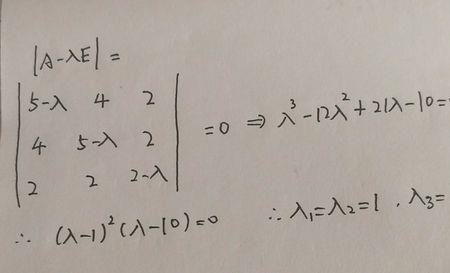 |A-λE|=
|5-λ 4 2|
|4 5-λ 2| =0 ⇒ λ³-12λ²+21λ-10=
|2 2 2-λ|
∴ (λ-1)²(λ-10)=0 ∴ λ₁=λ₂=1 , λ₃=